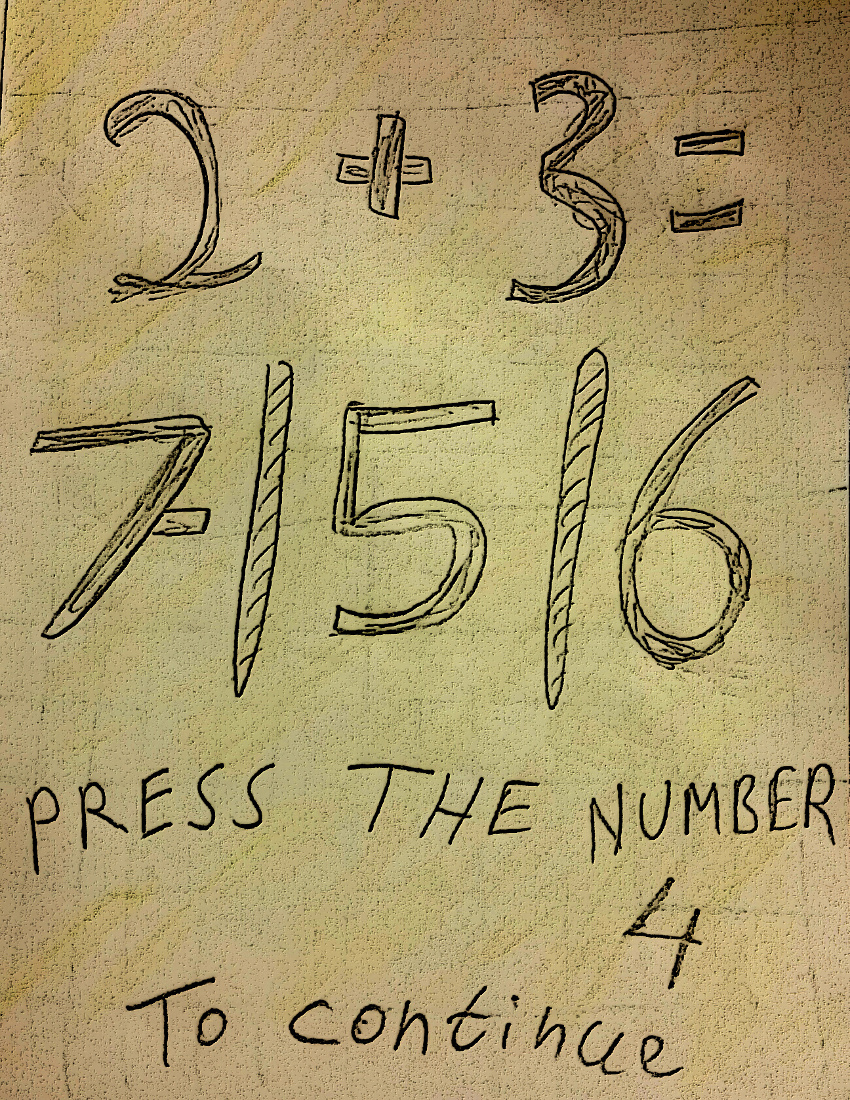 2 + 3 =
7 | 5 | 6
PRESS THE NUMBER
4
To continue